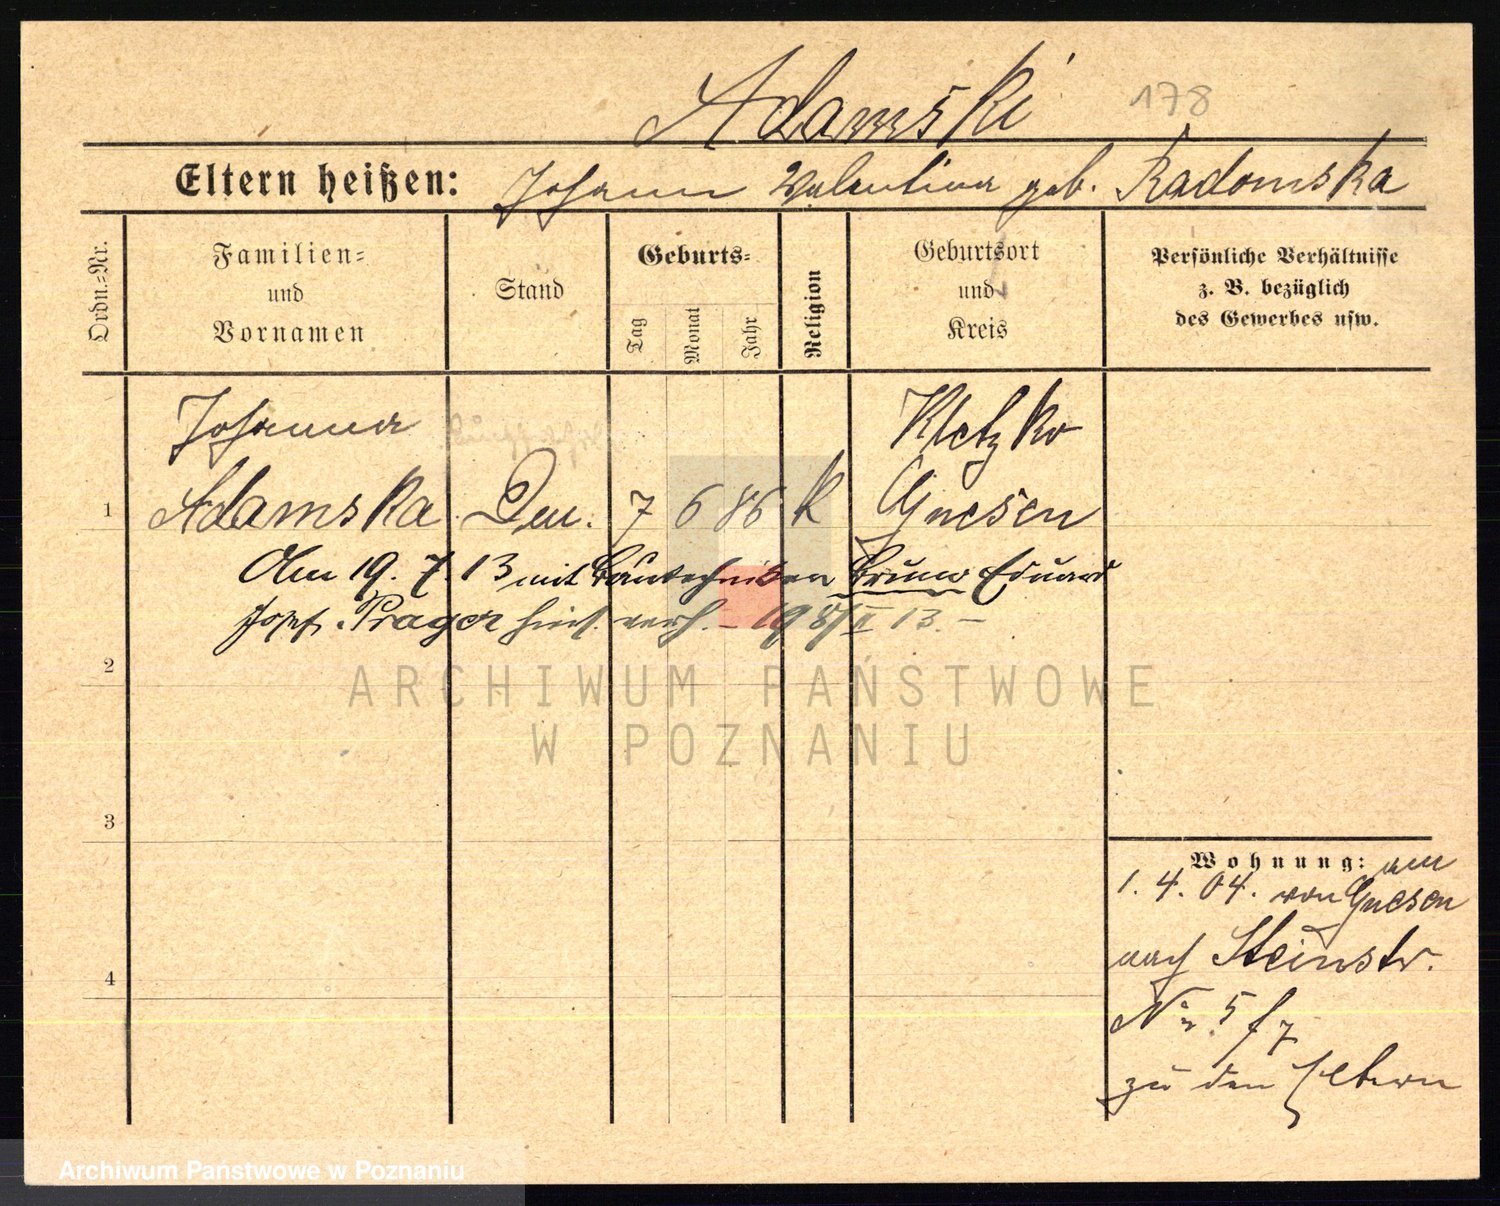 Adamski 178
Eltern heißen: Johann Valentina geb. Radomska
Ordn.-Nr.
Familien-
und
Vornamen
Stand
Geburts-
Tag
Monat
Jahr
Religion
Geburtsort
und
Kreis
Persönliche Verhältnisse
z. B. bezüglich
des Gewerbes usw.
Johanna Kletzko
1 Adamska 7 6 86 K Gnesen
Am 19. 7. 13 mit Bautechniker Bruno Eduard
Josef Prager verh. 13.
2
ARCHIWUM PAŃSTWOWE
W POZNANIU
3
Wohnung: am
1. 4. 04. von Gnesen
4
nach Steinstr.
Nr. 5
zu den Eltern
Archiwum Państwowe w Poznaniu